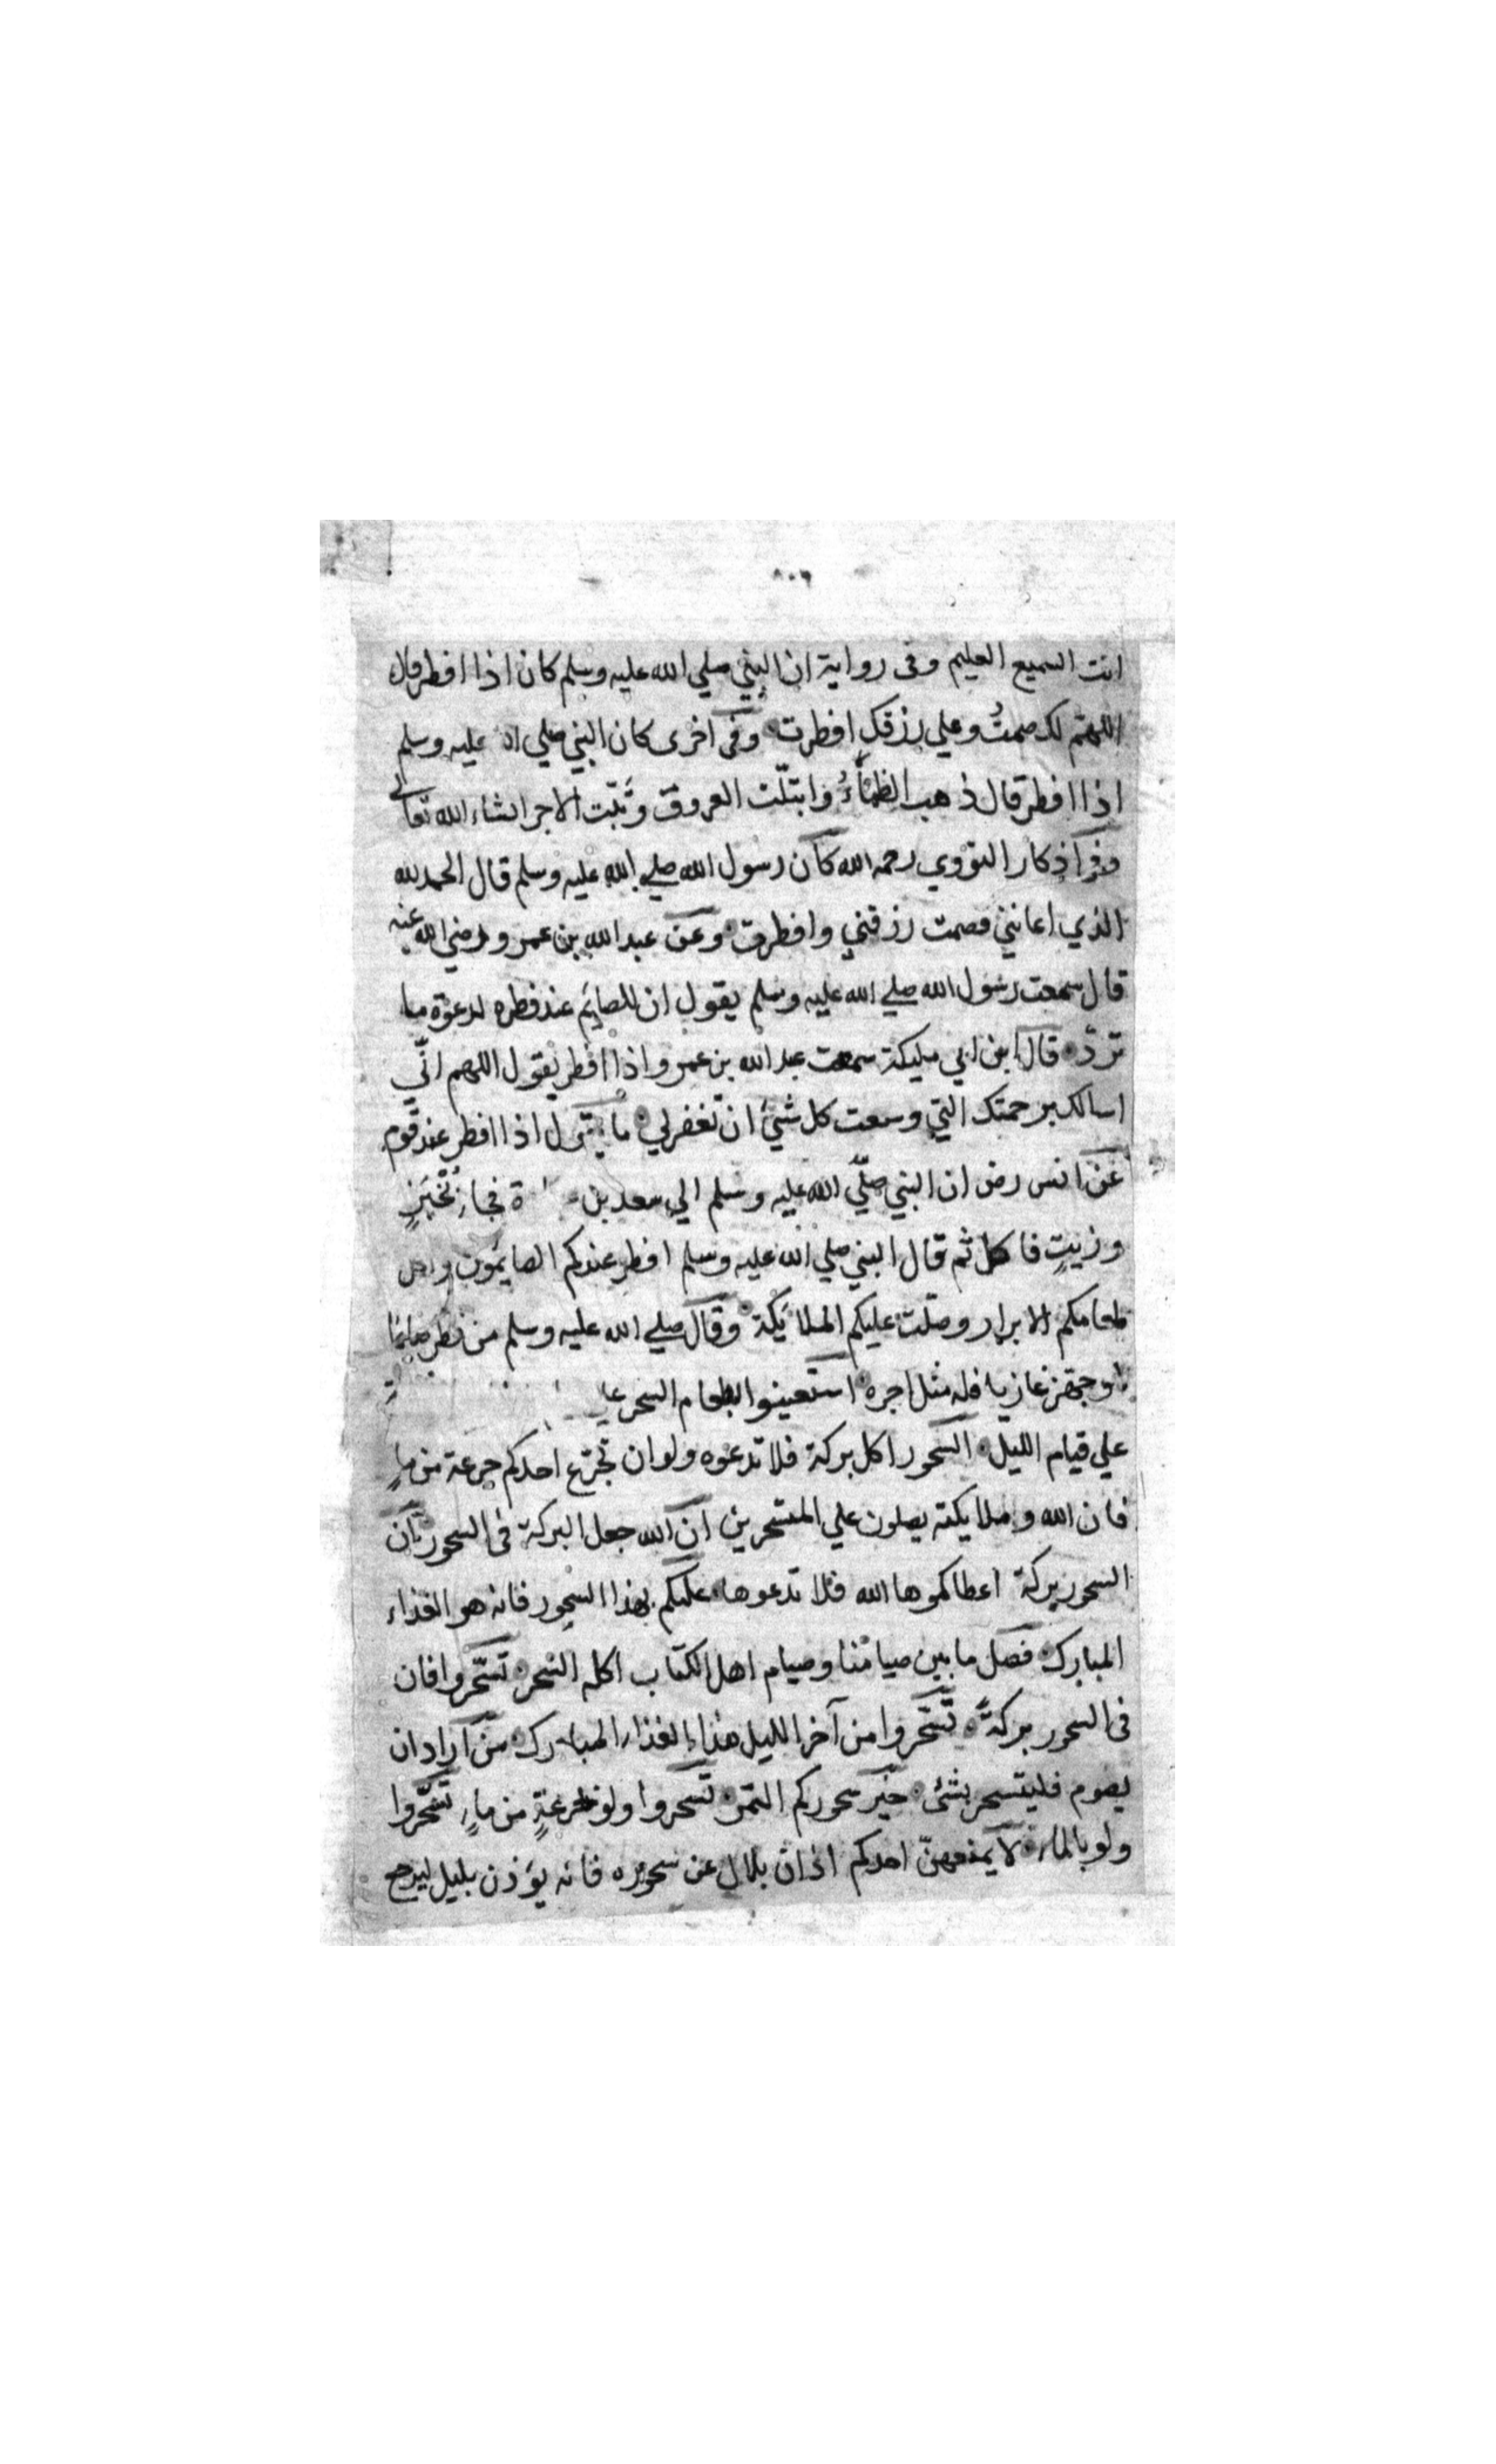 انت السميع العليم وفى رواية ان النبي صلي الله عليه وسلم كان اذا افطر قال
اللهم لك صمتُ وعلي رزقك افطرت وفى اخرى كان النبي صلي الله عليه وسلم
اذا افطر قال ذهب الظمأُ وابتلّت العروق وثبّت الاجر انشاء الله تعالي
وفى اذكار النووي رحمه الله كان رسول الله صلي الله عليه وسلم قال الحمد لله
الذي اعانني فصمت رزقني وافطرت وعن عبد الله بن عمرو رضي الله عنه
قال سمعت رسول الله صلي الله عليه وسلم يقول ان للصايم عند فطره لدعوة ما
تردّ قال ابن ابي مليكة سمعت عبد الله بن عمرو اذا افطر يقول اللهم انّي
اسالك برحمتك التي وسعت كل شئ ان تغفرلي ما يقول اذا افطر عند قوم
عن انس رض ان النبي صلّي الله عليه وسلم الي سعد بن فجاء بخبزٍ
وزيتٍ فاكل ثم قال النبي صلي الله عليه وسلم افطر عندكم الصايمون واكل
طعامكم الابرار وصلّت عليكم الملايكة وقال صلي الله عليه وسلم من فطر صايمًا
او جهّز غازيا فله مثل اجره استعينوا بطعام السحر
علي قيام الليل السحور اكل بركة فلا تدعوه ولو ان تجرّع احدكم جرعة من ماءٍ
فان الله وملايكته يصلون علي المتسحرين ان الله جعل البركة فى السحور ان
السحور بركة اعطاكموها الله فلا تدعوها عليكم بهذا السحور فانه هو الغذاء
المبارك فصل ما بين صيامنا وصيام اهل الكتاب اكله السحر تسحّروا فان
فى السحور بركةً تسحّروا من آخر الليل هذا الغذاء المبارك من اراد ان
يصوم فليتسحر بشئ خير سحوركم التمر تسحروا ولو جرعةٍ من ماءٍ تسحّروا
ولو بالماء لا يمنعهنّ احدكم اذان بلال عن سحوره فانه يؤذن بليل ليرجع